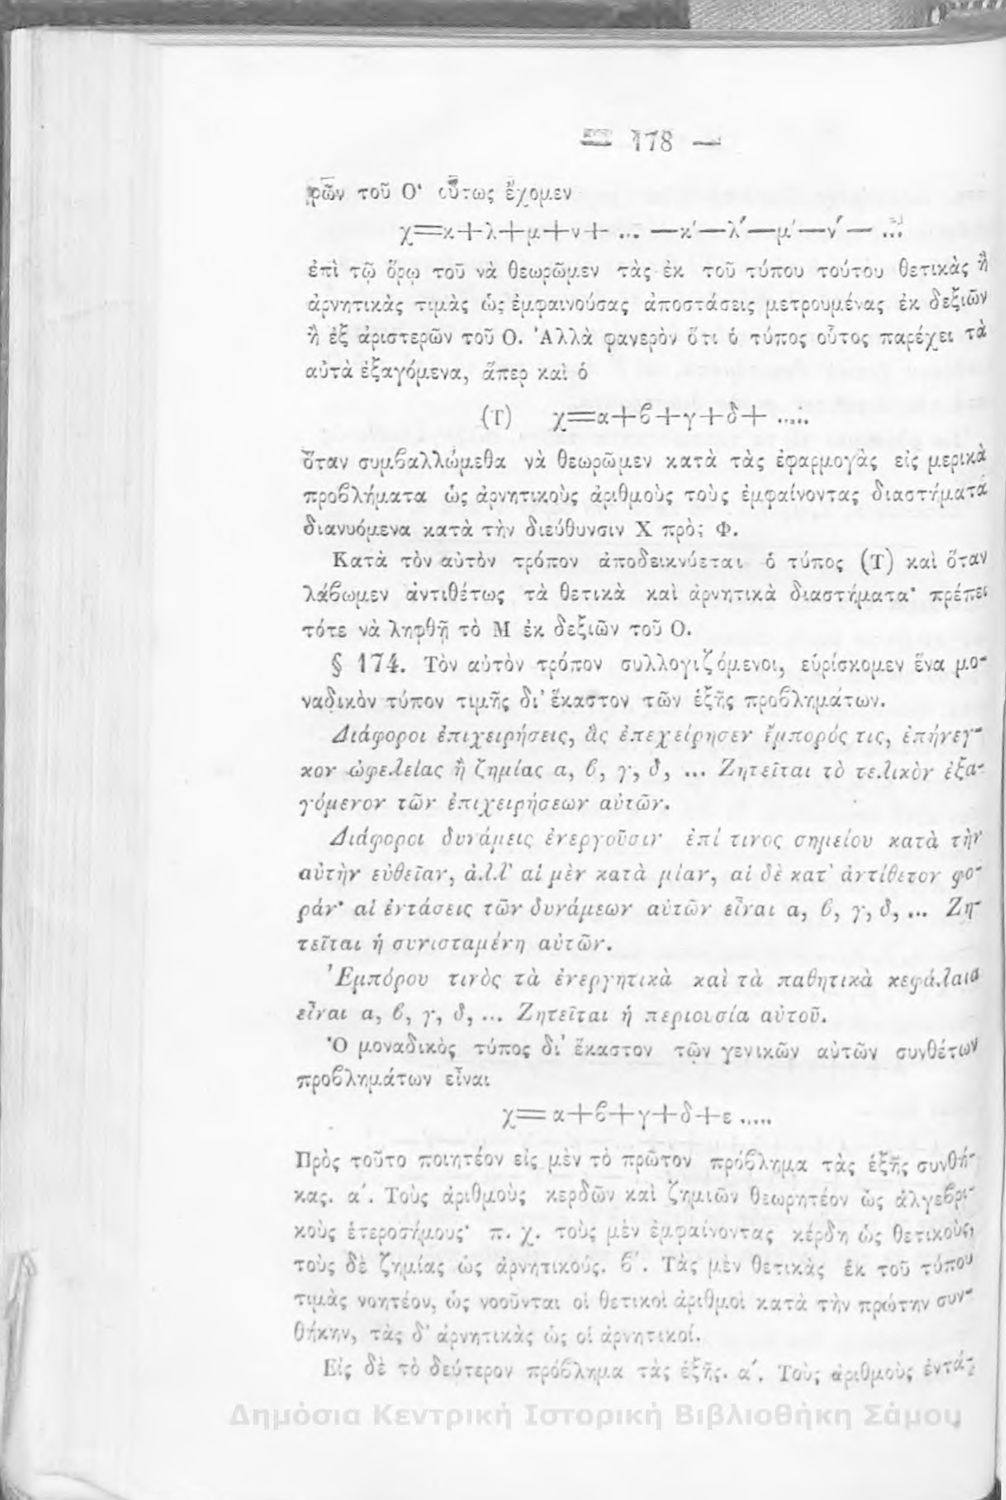 — 178 —
ρῶν τοῦ Ο· οὕτως ἔχομεν
χ=κ+λ+μ+ν+ ... —κ'—λ'—μ'—ν'— ...
ἐπὶ τῷ ὅρῳ τοῦ νὰ θεωρῶμεν τὰς ἐκ τοῦ τύπου τούτου θετικὰς ἢ
ἀρνητικὰς τιμὰς ὡς ἐμφαινούσας ἀποστάσεις μετρουμένας ἐκ δεξιῶν
ἢ ἐξ ἀριστερῶν τοῦ Ο. Ἀλλὰ φανερὸν ὅτι ὁ τύπος οὗτος παρέχει τὰ
αὐτὰ ἐξαγόμενα, ἅπερ καὶ ὁ
(Τ) χ=α+ϐ+γ+δ+ .....
ὅταν συμϐαλλώμεθα νὰ θεωρῶμεν κατὰ τὰς ἐφαρμογὰς εἰς μερικὰ
προϐλήματα ὡς ἀρνητικοὺς ἀριθμοὺς τοὺς ἐμφαίνοντας διαστήματα
διανυόμενα κατὰ τὴν διεύθυνσιν Χ πρὸς Φ.
Κατὰ τὸν αὐτὸν τρόπον ἀποδεικνύεται ὁ τύπος (Τ) καὶ ὅταν
λάϐωμεν ἀντιθέτως τὰ θετικὰ καὶ ἀρνητικὰ διαστήματα· πρέπει
τότε νὰ ληφθῇ τὸ Μ ἐκ δεξιῶν τοῦ Ο.
§ 174. Τὸν αὐτὸν τρόπον συλλογιζόμενοι, εὑρίσκομεν ἕνα μο-
ναδικὸν τύπον τιμῆς δι' ἕκαστον τῶν ἑξῆς προϐλημάτων.
Διάφοροι ἐπιχειρήσεις, ἃς ἐπεχείρησεν ἔμπορός τις, ἐπήνεγ-
κον ὠφελείας ἢ ζημίας α, ϐ, γ, δ, ... Ζητεῖται τὸ τελικὸν ἐξα-
γόμενον τῶν ἐπιχειρήσεων αὐτῶν.
Διάφοροι δυνάμεις ἐνεργοῦσιν ἐπί τινος σημείου κατὰ τὴν
αὐτὴν εὐθεῖαν, ἀλλ' αἱ μὲν κατὰ μίαν, αἱ δὲ κατ' ἀντίθετον φο-
ράν· αἱ ἐντάσεις τῶν δυνάμεων αὐτῶν εἶναι α, ϐ, γ, δ, ... Ζη-
τεῖται ἡ συνισταμένη αὐτῶν.
Ἐμπόρου τινὸς τὰ ἐνεργητικὰ καὶ τὰ παθητικὰ κεφάλαια
εἶναι α, ϐ, γ, δ, ... Ζητεῖται ἡ περιουσία αὐτοῦ.
Ὁ μοναδικὸς τύπος δι' ἕκαστον τῶν γενικῶν αὐτῶν συνθέτων
προϐλημάτων εἶναι
χ=α+ϐ+γ+δ+ε .....
Πρὸς τοῦτο ποιητέον εἰς μὲν τὸ πρῶτον πρόϐλημα τὰς ἑξῆς συνθή-
κας. α'. Τοὺς ἀριθμοὺς κερδῶν καὶ ζημιῶν θεωρητέον ὡς ἀλγεϐρι-
κοὺς ἑτεροσήμους· π. χ. τοὺς μὲν ἐμφαίνοντας κέρδη ὡς θετικούς,
τοὺς δὲ ζημίας ὡς ἀρνητικούς. ϐ'. Τὰς μὲν θετικὰς ἐκ τοῦ τύπου
τιμὰς νοητέον, ὡς νοοῦνται οἱ θετικοὶ ἀριθμοὶ κατὰ τὴν πρώτην συν-
θήκην, τὰς δ' ἀρνητικὰς ὡς οἱ ἀρνητικοί.
Εἰς δὲ τὸ δεύτερον πρόϐλημα τὰς ἑξῆς. α'. Τοὺς ἀριθμοὺς ἐντά-
Δημόσια Κεντρική Ιστορική Βιβλιοθήκη Σάμου